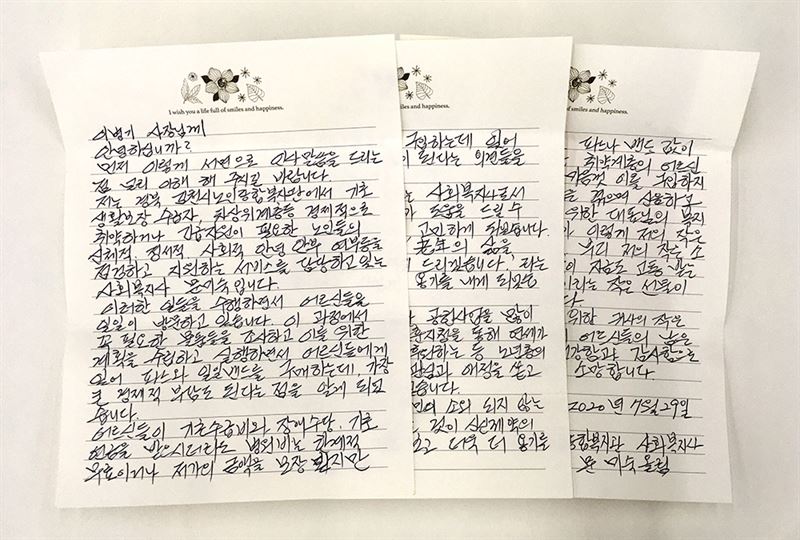 I wish you a life full of smiles and happiness.
이병기 사장님께
안녕하십니까?
먼저 이렇게 서면으로 인사말씀을 드리는
점 널리 이해 해 주시길 바랍니다.
저는 경북 김천시노인종합복지관에서 기초
생활보장 수급자, 차상위계층등 경제적으로
취약하거나 감정지원이 필요한 노인들의
신체적, 정서적, 사회적 안녕 안부 여부등을
점검하고 지원하는 서비스를 담당하고 있는
사회복지사 윤미숙입니다.
이러한 일들을 수행하면서 어르신들을
일일이 방문하고 있습니다. 이 과정에서
꼭 필요한 물품들을 조사하고 이를 위한
계획을 수립하고 실행하면서 어르신들에게
있어 파스나 일일밴드를 구매하는데, 가장
큰 경제적 부담도 된다는 점을 알게 되었
습니다.
어르신들의 기초수급비와 장애수당, 기초
연금을 받으시더라도 병원비는 한계적
무료이거나 저가의 금액을 보장 받지만
and happiness.
구입하는데 있어
이 된다는 의견들을
는 사회복지사로서
가 도움을 드릴 수
고민하게 되었습니다.
老年의 삶을
드리겠습니다. 라는
용기를 내게 되었는
공헌사업을 많이
지침을 통해 연세가
하는 등 노년층의
과 애정을 쏟고
있습니다.
이 소외 되지 않는
것이 신신제약의
보고 더욱 더 용기를
of smiles and happiness.
파스나 밴드 값이
취약계층의 어르신
마음껏 이를 구입하지
를 꺾으며 사용하고
위한 대표님의 복지
이렇게 저의 작은
우리 저의 작은 소
작은 선물이
다.
위한 귀사의 작은
어르신들의 높은
감사함으로
소망합니다.
2020년 7월 29일
종합복지관 사회복지사
윤미숙 올림